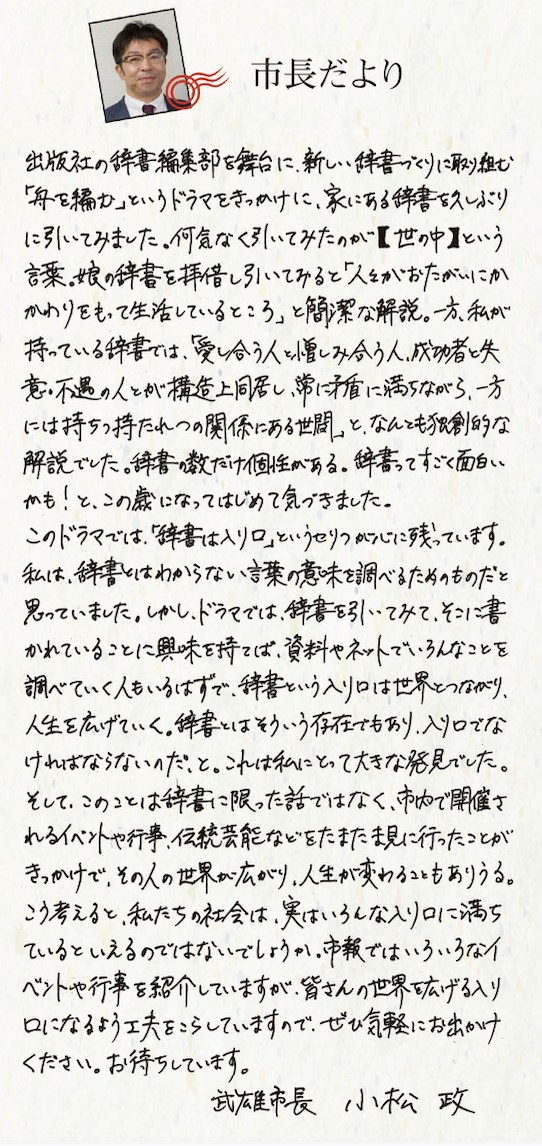 市長だより
出版社の辞書編集部を舞台に、新しい辞書づくりに取り組む
「舟を編む」というドラマをきっかけに、家にある辞書を久しぶり
に引いてみました。何気なく引いてみたのが【世の中】という
言葉。娘の辞書を拝借し引いてみると「人々がおたがいにか
かわりをもって生活しているところ」と簡潔な解説。一方、私が
持っている辞書では、「愛し合う人と憎しみ合う人、成功者と失
意・不遇の人とが構造上同居し、常に矛盾に満ちながら、一方
には持ちつ持たれつの関係にある世間」と、なんとも独創的な
解説でした。辞書の数だけ個性がある。辞書ってすごと面白い
かも！と、この歳になってはじめて気づきました。
このドラマでは、「辞書は入り口」というセリフが心に残っています。
私は、辞書とはわからない言葉の意味を調べるためのものだと
思っていました。しかし、ドラマでは、辞書を引いてみて、そこに書
かれていることに興味を持てば、資料やネットでいろんなことを
調べていく人もいるはずで、辞書という入り口は世界とつながり、
人生を広げていく。辞書とはそういう存在でもあり、入り口でな
ければならないのだ、と。これは私にとって大きな発見でした。
そして、このことは辞書に限った話ではなく、市内で開催さ
れるイベントや行事、伝統芸能などをたまたま見に行ったことが
きっかけで、その人の世界が広がり、人生が変わることもありうる。
こう考えると、私たちの社会は、実はいろんな入り口に満ち
ているといえるのではないでしょうか。市報ではいろいろなイ
ベントや行事を紹介していますが、皆さんの世界を広げる入り
口になるよう工夫をこらしていますので、ぜひ気軽にお出かけ
ください。お待ちしています。
武雄市長 小松 政